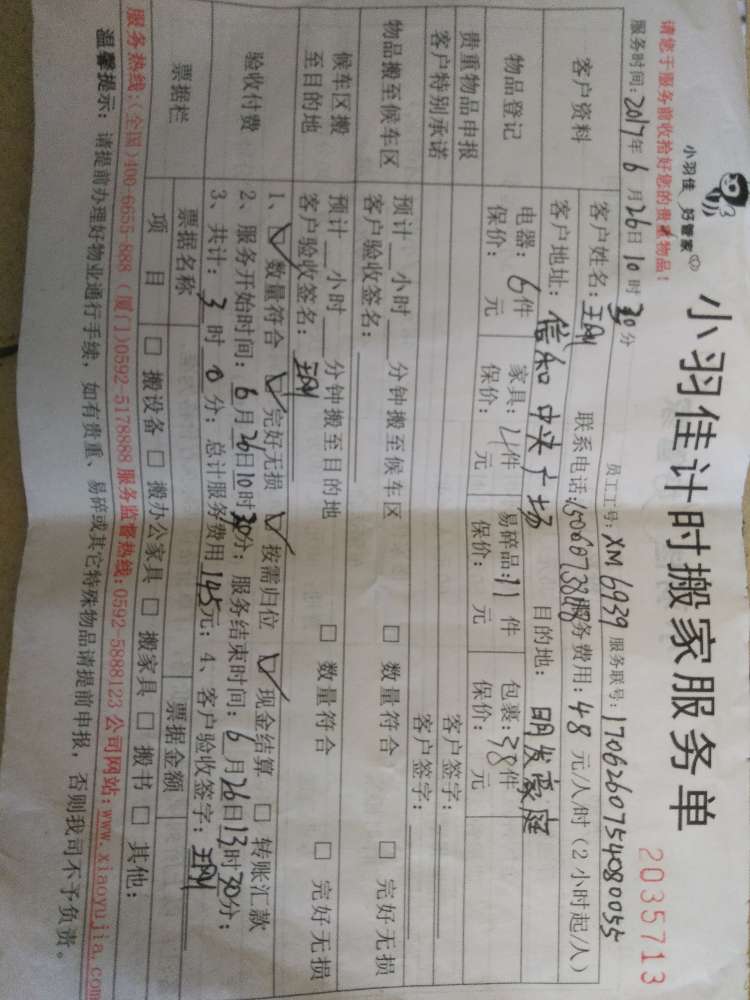 小羽佳 好管家
小羽佳计时搬家服务单
2035713
请您于服务前收拾好您的贵重物品！
员工工号：XM6939 服务联号：1706260754080055
服务时间：2017年6月26日10时30分
客户资料
客户姓名： 联系电话： 服务费用：48元/人/时（2小时起/人）
客户地址：信和中央广场 目的地：明发豪庭
物品登记
电器：6件 家具：4件 易碎品：11件 包裹：38件
保价： 元 保价： 元 保价： 元 保价： 元
贵重物品申报 客户签字：
客户特别承诺 客户签字：
物品搬至候车区
预计__小时___分钟搬至候车区 □ 数量符合 □ 完好无损
客户验收签名：
候车区搬至目的地
预计__小时___分钟搬至目的地 □ 数量符合 □ 完好无损
客户验收签名：
验收付费
1、☑ 数量符合 ☑ 完好无损 ☑ 按需归位 ☑ 现金结算 □ 转账汇款
2、服务开始时间：6月26日10时30分；服务结束时间：6月26日13时30分；
3、共计：3时0分；总计服务费用145元；4、客户验收签字：
票据栏
票据名称 票据金额
项目 □ 搬设备 □ 搬办公家具 □ 搬家具 □ 搬书 □ 其他：
服务热线：（全国）400-6655-888（厦门）0592-5178888 服务监督热线：0592-5888123 公司网站：www.xiaoyujia.com
温馨提示：请提前办理好物业通行手续，如有贵重、易碎或其它特殊物品请提前申报，否则我司不予负责。